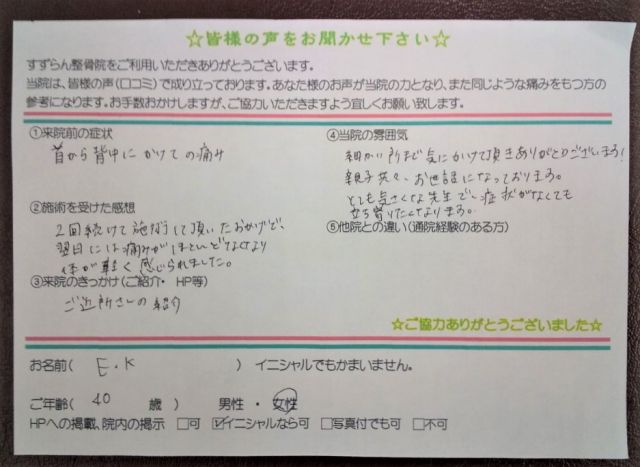 ☆皆様の声をお聞かせ下さい☆
すずらん整骨院をご利用いただきありがとうございます。
当院は、皆様の声(口コミ)で成り立っております。あなた様のお声が当院の力となり、また同じような痛みをもつ方の
参考になります。お手数おかけしますが、ご協力いただきますよう宜しくお願い致します。
①来院前の症状
首から背中にかけての痛み
②施術を受けた感想
2回続けて施術して頂いたおかげで、
翌日には痛みがほとんどなくなり
体が軽く感じられました。
③来院のきっかけ(ご紹介・ HP等)
ご近所さんの紹介
④当院の雰囲気
細かい所まで気にかけて頂きありがとうございます!
親子共々、お世話になっております。
とても気さくな先生で、症状がなくても
立ち寄りたくなります。
⑤他院との違い(通院経験のある方)
☆ご協力ありがとうございました☆
お名前( E.K ) イニシャルでもかまいません。
ご年齢( 40 歳 ) 男性 ・ 女性
HPへの掲載、院内の掲示 □可 ☑イニシャルなら可 □写真付でも可 □不可